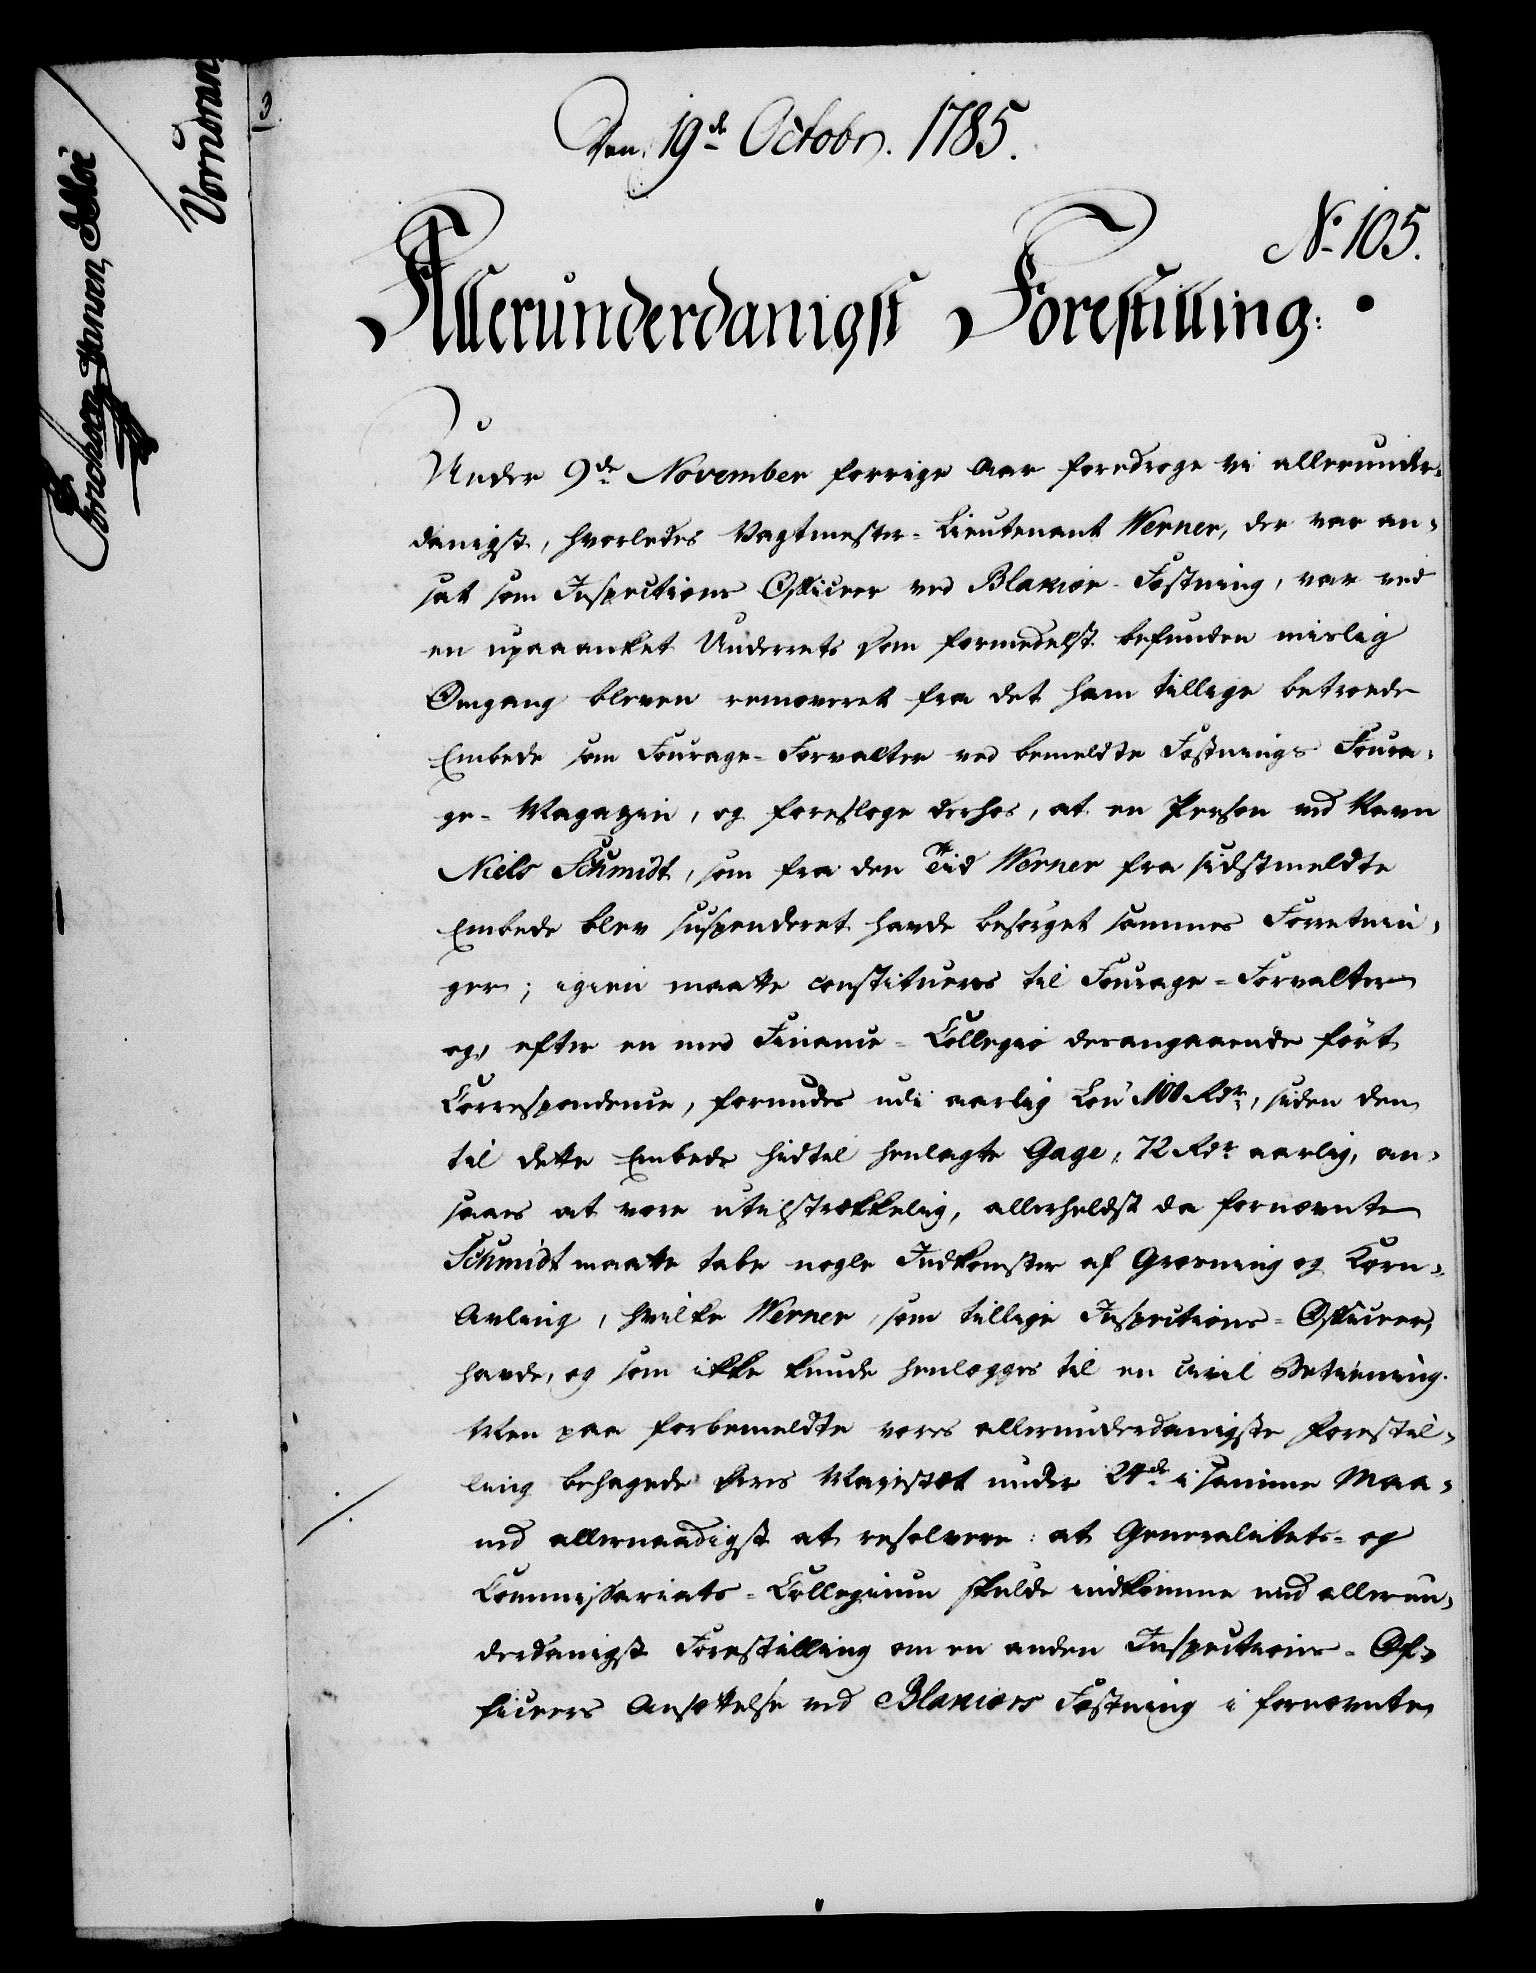 Den 19de Octobr. 1785.
No 105.
Allerunderdanigst Forestilling:
Under 9de November forrige Aar foredroge vi allerunder-
danigst, hvorledes Vagtmester-Lieutenant Werner, der var an-
sat som Inspections Officeer ved Blakiær-Fæstning, var ved
en upaaanket Underrets Dom formedelst befunden mislig
Omgang bleven removeret fra det ham tillige betroede
Embede som Fourage-Forvalter ved bemeldte Fæstnings Foura-
ge-Magazin, og foresloge derhos, at en Person ved Navn
Niels Schmidt, som fra den Tiid Werner fra sidstmeldte
Embede blev suspenderet havde besørget sammes Forretnin-
ger; igien maatte constitueres til Fourage-Forvalter
og, efter en med Finance-Collegio derangaaende ført
Correspondence, forundes udi aarlig Løn 100 Rdr, siden den
til dette Embede hidtil henlagte Gage, 72 Rdr aarlig, an-
saaes at være utilstrækkelig, allerhelst da fornævnte
Schmidt maatte tabe nogle Indkomster af Græsning og Korn-
Avling, hvilke Werner, som tillige Inspections-Officeer,
havde, og som ikke kunde henlægges til en civil Betiening.
Men paa forbemeldte vores allerunderdanigste Forestil-
ling behagede Deres Majestæt under 24de i samme Maa-
ned allernaadigst at resolvere: at Generalitets- og
Commissariats-Collegium skulde indkomme med allerun-
derdanigst Forestilling om en anden Inspections-Of-
ficeers Ansættelse ved Blakiærs Fæstning i fornævnte